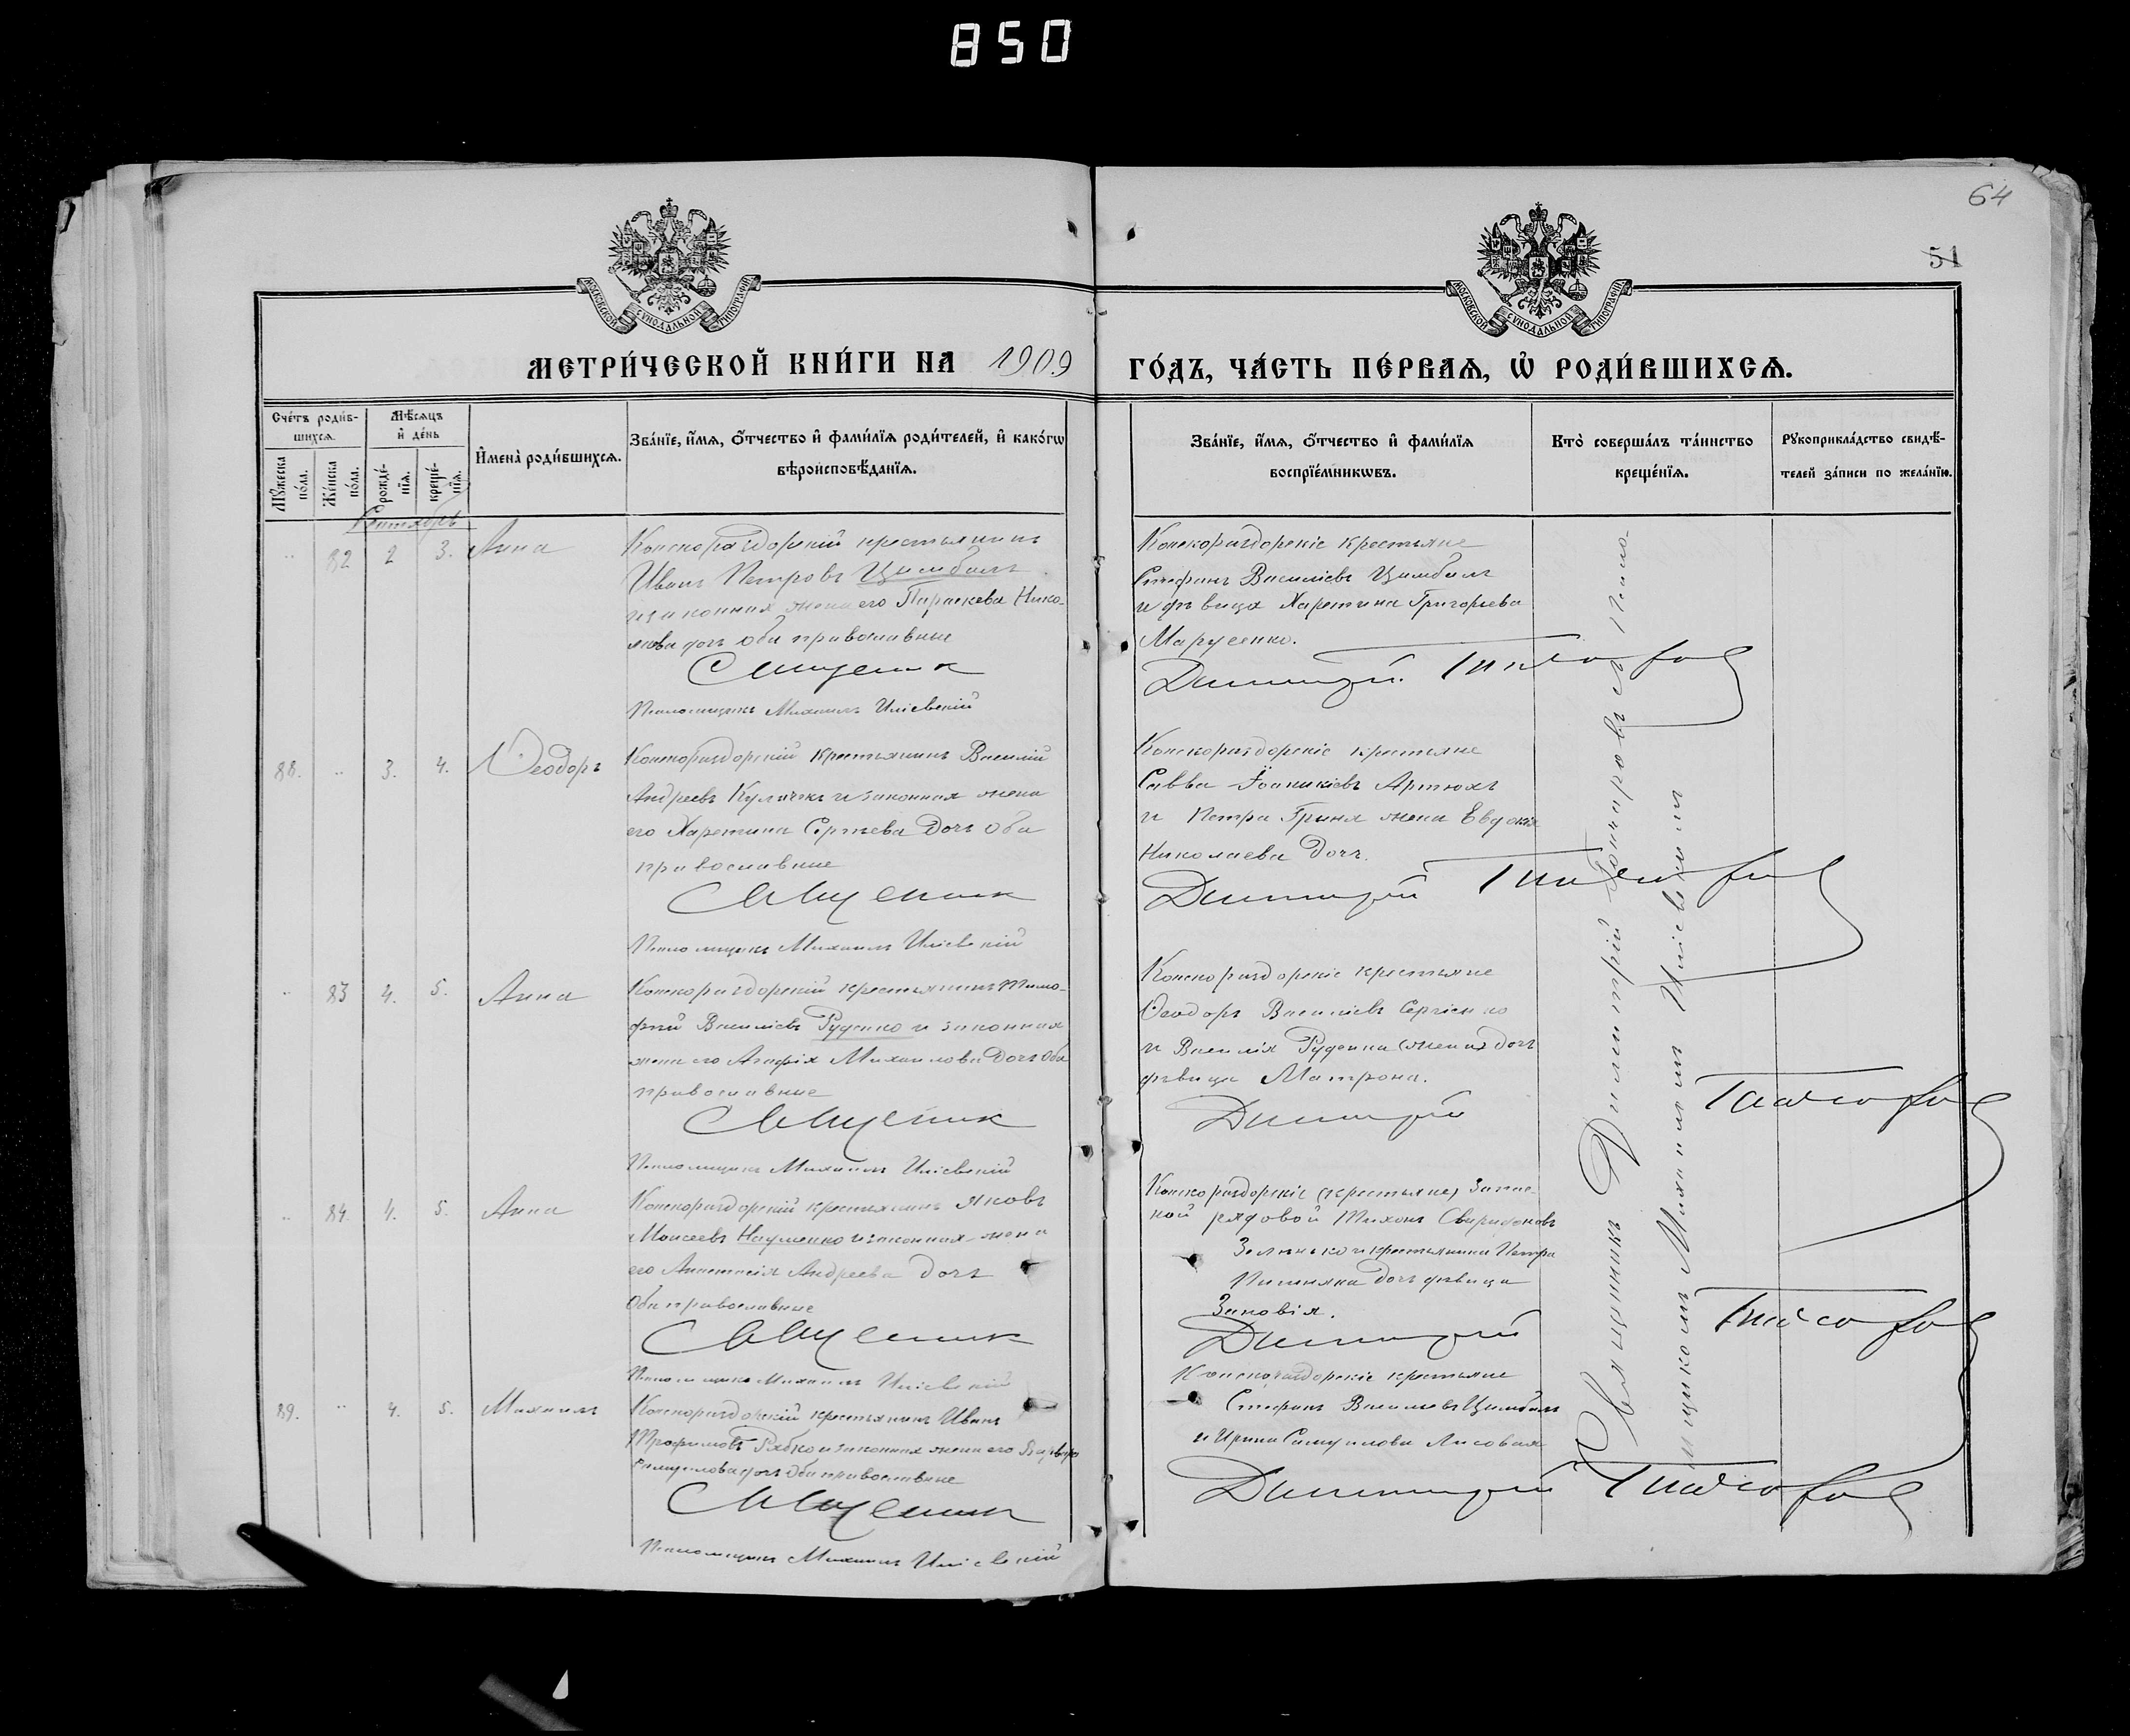 850
64
51
МОСКОВСКОЙ СѴНОДАЛЬНОЙ ТИПОГРАФІИ
МОСКОВСКОЙ СѴНОДАЛЬНОЙ ТИПОГРАФІИ
МЕТРИ́ЧЕСКОЙ КНИ́ГИ НА 1909 ГО́ДЪ, ЧА́СТЬ ПЕ́РВАѦ, Ѡ҆ РОДИ́ВШИХСѦ.
Сче́тъ роди́в-
шихсѧ.
Мѣ́сѧцъ
и҆ де́нь
Мꙋ́жеска
по́ла.
Же́нска
по́ла.
рожде́-
нїѧ.
креще́-
нїѧ.
И҆мена̀ роди́вшихсѧ.
Зва́нїе, и҆́мѧ, ѻ҆́тчество и҆ фами́лїѧ роди́телей, и҆ како́гѡ
вѣроисповѣ́данїѧ.
Зва́нїе, и҆́мѧ, ѻ҆́тчество и҆ фами́лїѧ
воспрїе́мникѡвъ.
Кто̀ соверша́лъ та́инство
креще́нїѧ.
Рꙋкоприкла́дство свидѣ́-
телей за́писи по жела́нїю.
Сентябрь
82 2 3. Анна
Конскораздорскій крестьянинъ
Иванъ Петровъ Цимбалъ
и законная жена его Параскева Нико-
лаева доч. оба православные
Священик
Псаломщикъ Михаилъ Иліевскій
Конскораздорскіе крестьяне
Стефанъ Василіевъ Цимбалъ
и дѣвица Харетина Григорьева
Марусенко.
Димитрій
88. 3. 4. Ѳеодоръ
Конскораздорскій крестьянинъ Василій
Андреевъ Кулячекъ и законная жена
его Харетина Сергѣева доч. оба
православные
Священик
Псаломщикъ Михаилъ Иліевскій
Конскораздорскіе крестьяне
Савва Іоаникіевъ Артюхъ
и Петра Гриня жена Евдокія
Николаева доч.
Димитрій
83 4. 5. Анна
Конскораздорскій крестьянинъ Тимо-
фей Василіевъ Руденко и законная
жена его Агафія Михаилова доч. оба
православные
Священик
Псаломщикъ Михаилъ Иліевскій
Конскораздорскіе крестьяне
Ѳеодоръ Василіевъ Сергіенко
и Василія Руденка (жена) доч.
дѣвица Матрона.
Димитрій
84 4. 5. Анна
Конскораздорскій крестьянинъ Яковъ
Моисеевъ Науменко и законная жена
его Анастасія Андреева доч.
оба православные
Священик
Псаломщикъ Михаилъ Иліевскій
Конскораздорскіе (крестьяне) запас-
ной рядовой Тихонъ Свиридоновъ
и крестьянина Петра
доч. дѣвица
Зиновія.
Димитрій
89. 4. 5. Михаилъ
Конскораздорскій крестьянинъ Иванъ
Трофимовъ Рябко и законная жена его Варвара
Самуилова доч. оба православные
Священик
Псаломщикъ Михаилъ Иліевскій
Конскораздорскіе крестьяне
Стефанъ Васильевъ Цимбалъ
и Ирина Самуилова Лисовая
Димитрій
Священникъ Димитрій Гончаровъ съ Псало-
мщикомъ Михаиломъ Иліевскимъ